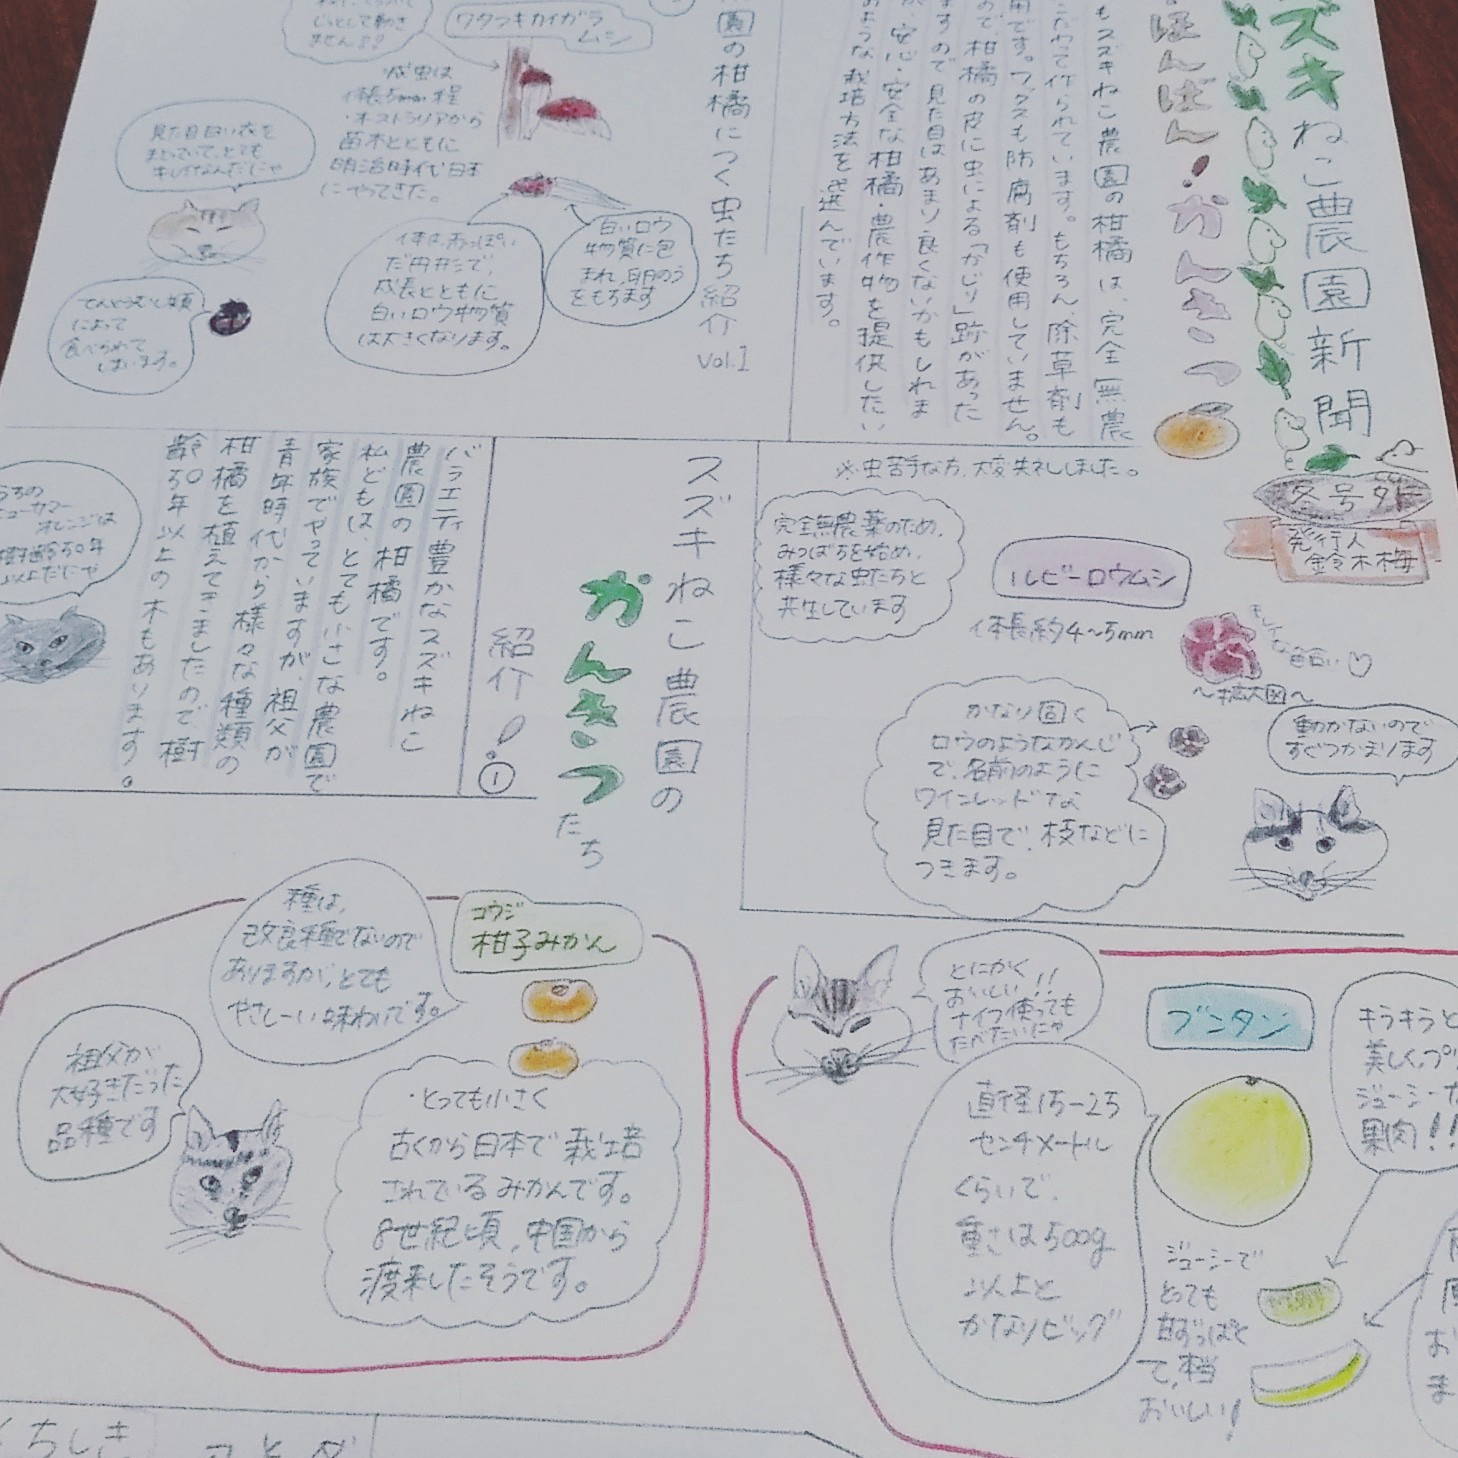 ズキねこ農園新聞
冬号外
発行人
鈴木梅
ほんばん!かんきつ
もスズキねこ農園の柑橘は、完全無農
こだわって作られています。もちろん、除草剤も
用です。ワックスも防腐剤も使用していません。
ので、柑橘の皮に虫による「かじり」跡があった
ますので見た目はあまり良くないかもしれま
が、安心・安全な柑橘・農作物を提供したい
のような栽培方法を選んでいます。
園の柑橘につく虫たち紹介 Vol.1
ワタフキカイガラ
ムシ
じっとして動き
ません!!
成虫は
体長5mm程
・オーストラリアから
苗木とともに
明治時代日本
にやってきた。
見た目白い衣を
まとっていて、とても
キレイなんだにゃ
白いロウ
物質に包
まれ、卵のう
をもちます
体は、赤っぽい
だ円形で、
成長とともに
白いロウ物質
は大きくなります。
てんとうむし類
によって
食べられて
しまいます。
※虫苦手な方、大変失礼しました。
完全無農薬のため、
みつばちを始め、
様々な虫たちと
共生しています
ルビーロウムシ
体長約4〜5mm
キレイな色合い♡
〜拡大図〜
動かないので
すぐつかまります
かなり固く
ロウのようなかんじ
で、名前のように
ワインレッドな
見た目で、枝などに
つきます。
スズキねこ農園の
かんきつたち
紹介!①
バラエティ豊かなスズキねこ
農園の柑橘です。
私どもは、とても小さな農園で
家族でやっていますが、祖父が
青年時代から様々な種類の
柑橘を植えてきましたので樹
齢50年以上の木もあります。
うちの
ニューサマー
オレンジは
樹齢50年
以上だにゃ
コウジ
柑子みかん
種は、
改良種でないので
ありますが、とても
やさしーい味わいです。
祖父が
大好きだった
品種です
・とっても小さく
古くから日本で栽培
されているみかんです。
8世紀頃、中国から
渡来したそうです。
ブンタン
とにかく
おいしい!!
ナイフ使っても
たべたいにゃ
直径15-25
センチメートル
くらいで、
重さは500g
以上と
かなりビッグ
キラキラと
美しく、プ
ジューシーな
果肉!!
ジューシーで
とっても
甘ずっぱく
て、本当
おいしい!
くちしき